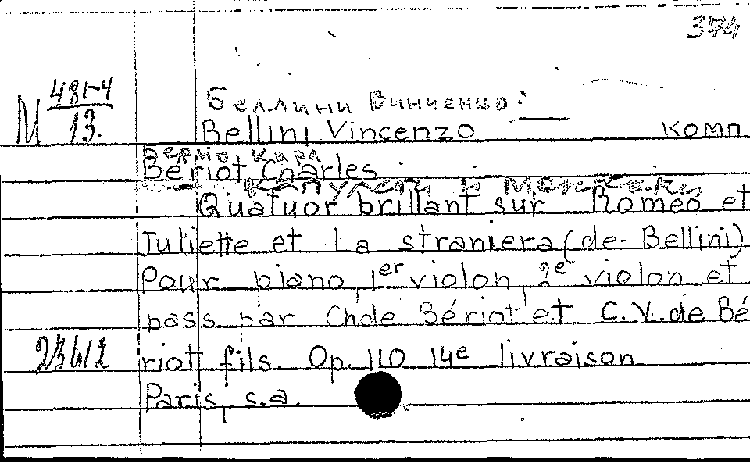 374
М 481-4
13.
Беллини Винченцо:
Bellini, Vincenzo комп
Берио Карл
Bériot, Charles
Капулети и Монтекки
Quatuor brillant sur Romeo et
Juliette et La straniera (de Bellini)
Pour piano, 1er violon, 2e violon et
bass par Ch. de Bériot et C.V. de Bé
riot fils. Op. 110 14e livraison
Paris, s.a.